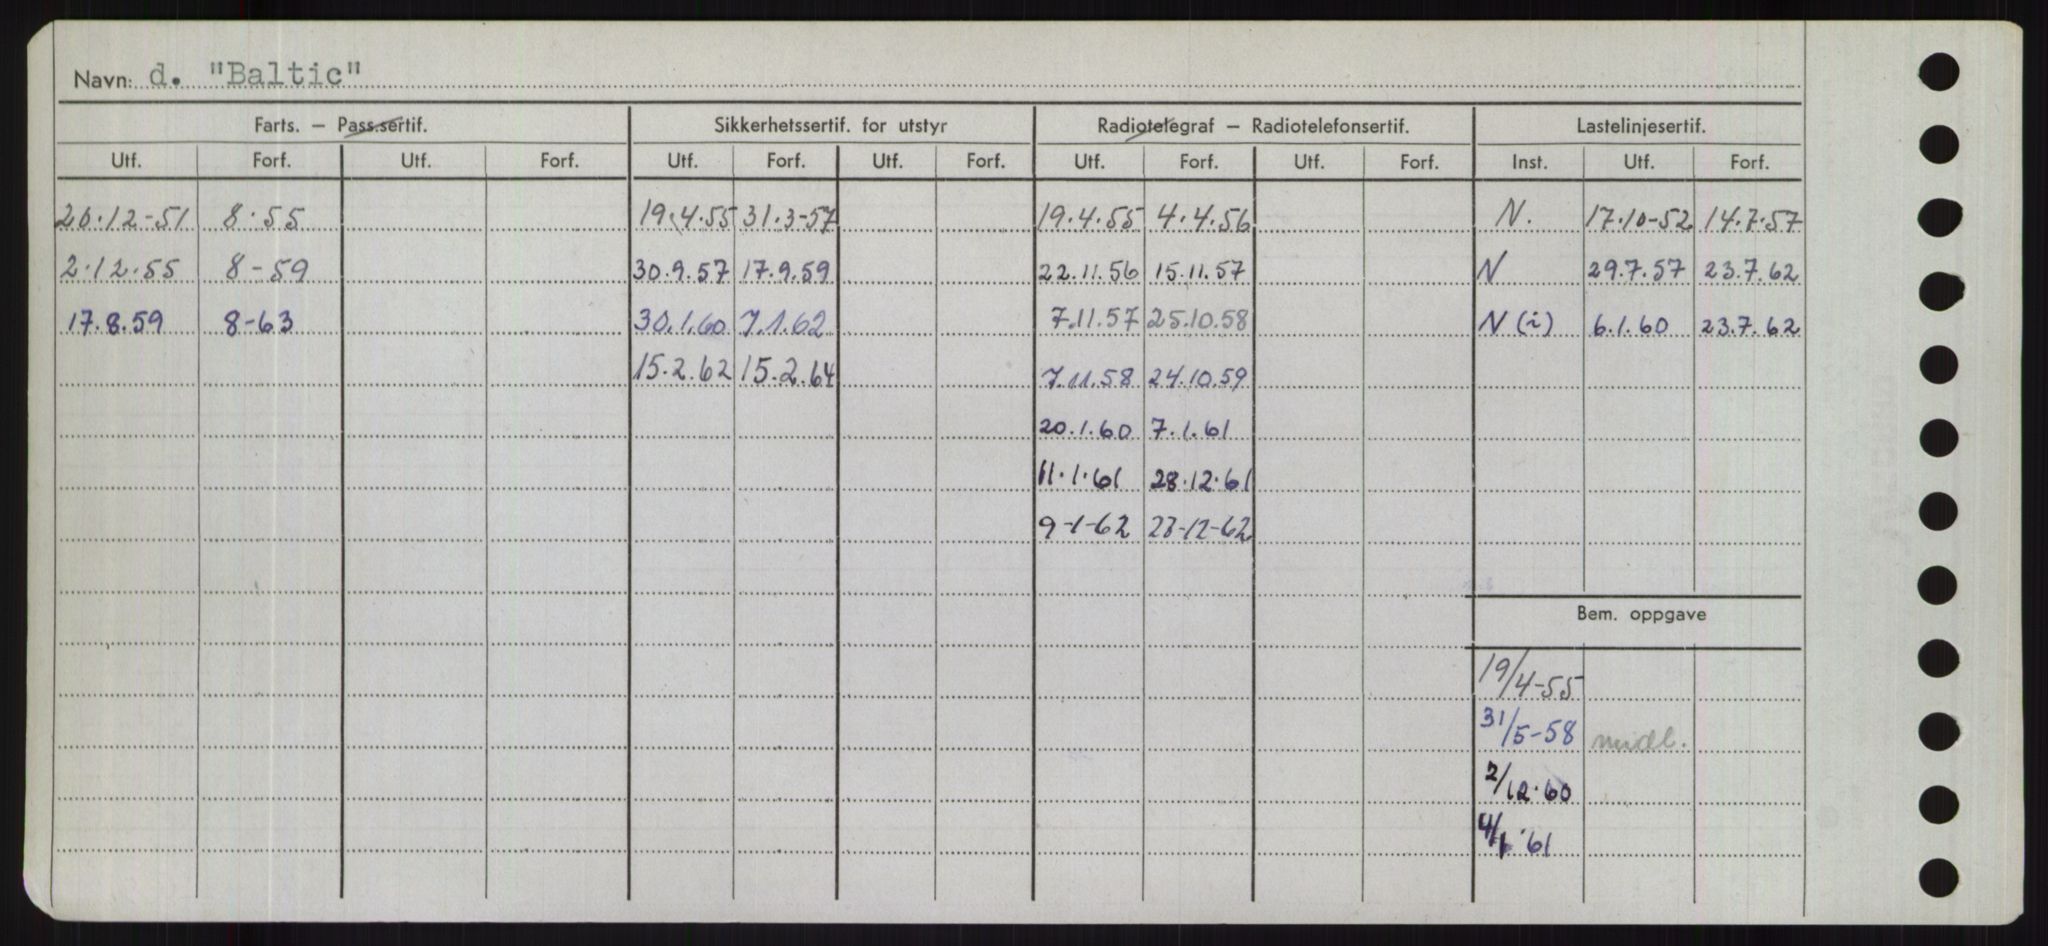 Navn: d. "Baltic"
Farts. – Pass.sertif. Sikkerhetssertif. for utstyr Radiotelegraf – Radiotelefonsertif. Lastelinjesertif.
Utf. Forf. Utf. Forf. Utf. Forf. Utf. Forf. Utf. Forf. Utf. Forf. Inst. Utf. Forf.
20.12-51 8.55 19.4.55 31.3-57 19.4.55 4.4.56 N. 17.10-52 14.7.57
2.12.55 8-59 30.9.57 17.9.59 22.11.56 15.11.57 N 29.7.57 23.7.62
17.8.59 8-63 30.1.60 7.1.62 7.11.57 25.10.58 N (i) 6.1.60 23.7.62
15.2.62 15.2.64 7.11.58 24.10.59
20.1.60 7.1.61
11.1.61 28.12.61
9-1-62 23-12-62
Bem. oppgave
19/4-55
31/5-58 midl.
2/12.60
4/1.61